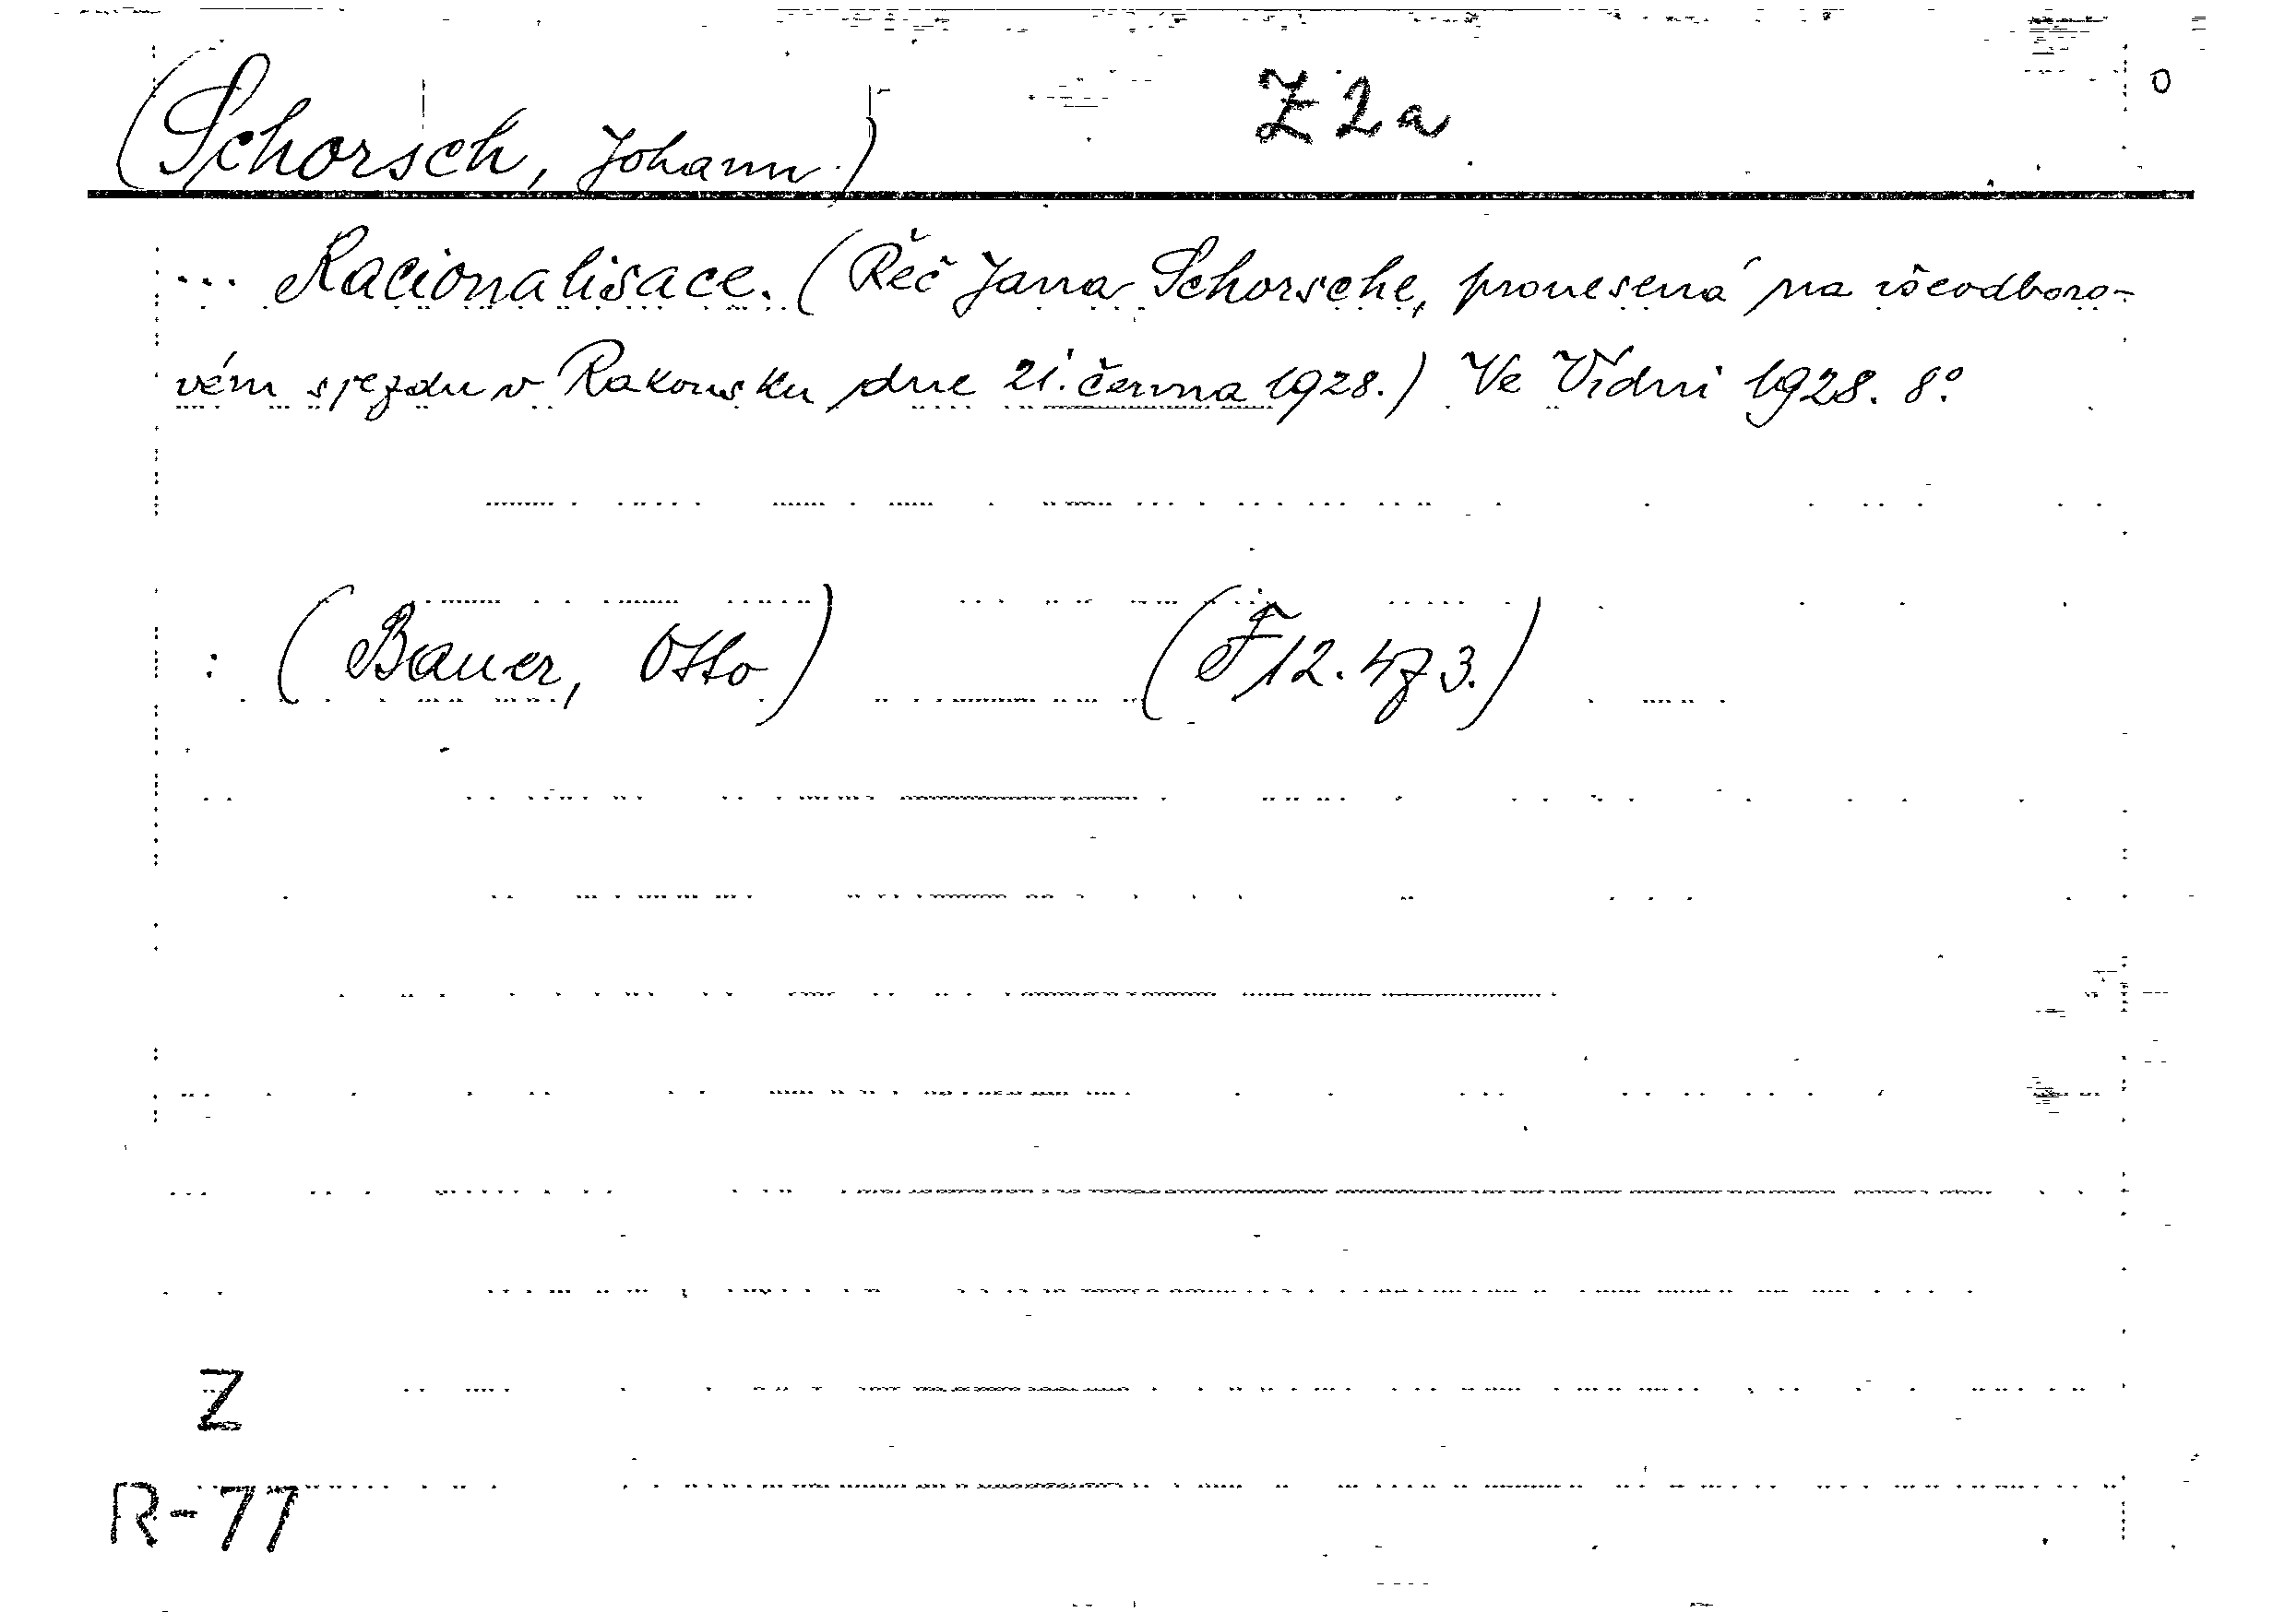 (Schorsch, Johann.) Z 2a O
... Racionalisace. (Řeč Jana Schorsche, pronesená na všeodboro-
vém sjezdu v Rakousku dne 21. června 1928.) Ve Vídni 1928. 8°.
: (Bauer, Otto) (F 12.473.)
Z
R-77